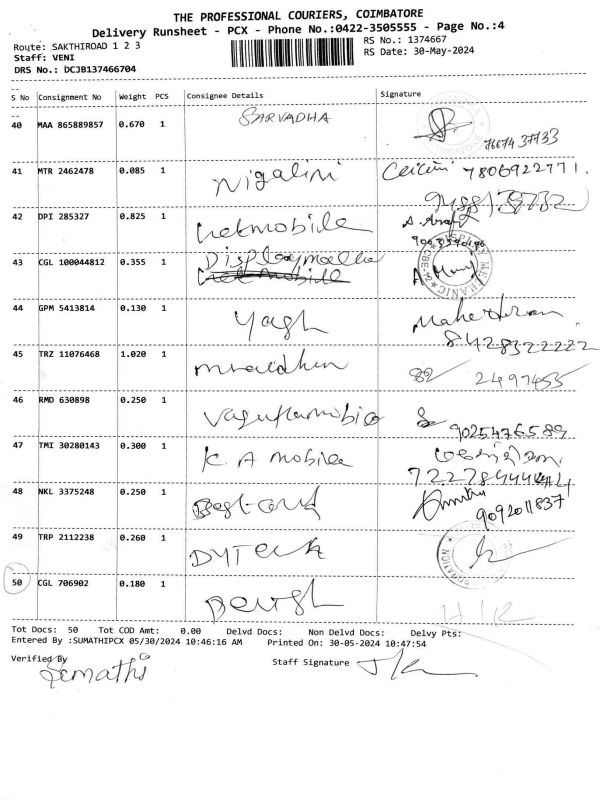 THE PROFESSIONAL COURIERS, COIMBATORE
Delivery Runsheet - PCX - Phone No.:0422-3505555 - Page No.:4
Route: SAKTHIROAD 1 2 3 RS No.: 1374667
Staff: VENI RS Date: 30-May-2024
DRS No.: DCJB137466704
S No Consignment No Weight PCS Consignee Details Signature
40 MAA 865889857 0.670 1 SARVADHA
76674 37733
41 MTR 2462478 0.085 1 Nigalini 7806922771.
42 DPI 285327 0.825 1 Netmobile
43 CGL 100044812 0.355 1 Displaymall
44 GPM 5413814 0.130 1 Yagh
8428322222
45 TRZ 11076468 1.020 1 82 2497455
46 RMD 630898 0.250 1
9025476589
47 TMI 30280143 0.300 1 K A mobile
48 NKL 3375248 0.250 1
9092011837
49 TRP 2112238 0.260 1
50 CGL 706902 0.180 1
Tot Docs: 50 Tot COD Amt: 0.00 Delvd Docs: Non Delvd Docs: Delvy Pts:
Entered By :SUMATHIPCX 05/30/2024 10:46:16 AM Printed On: 30-05-2024 10:47:54
Verified By Staff Signature
Sumathi